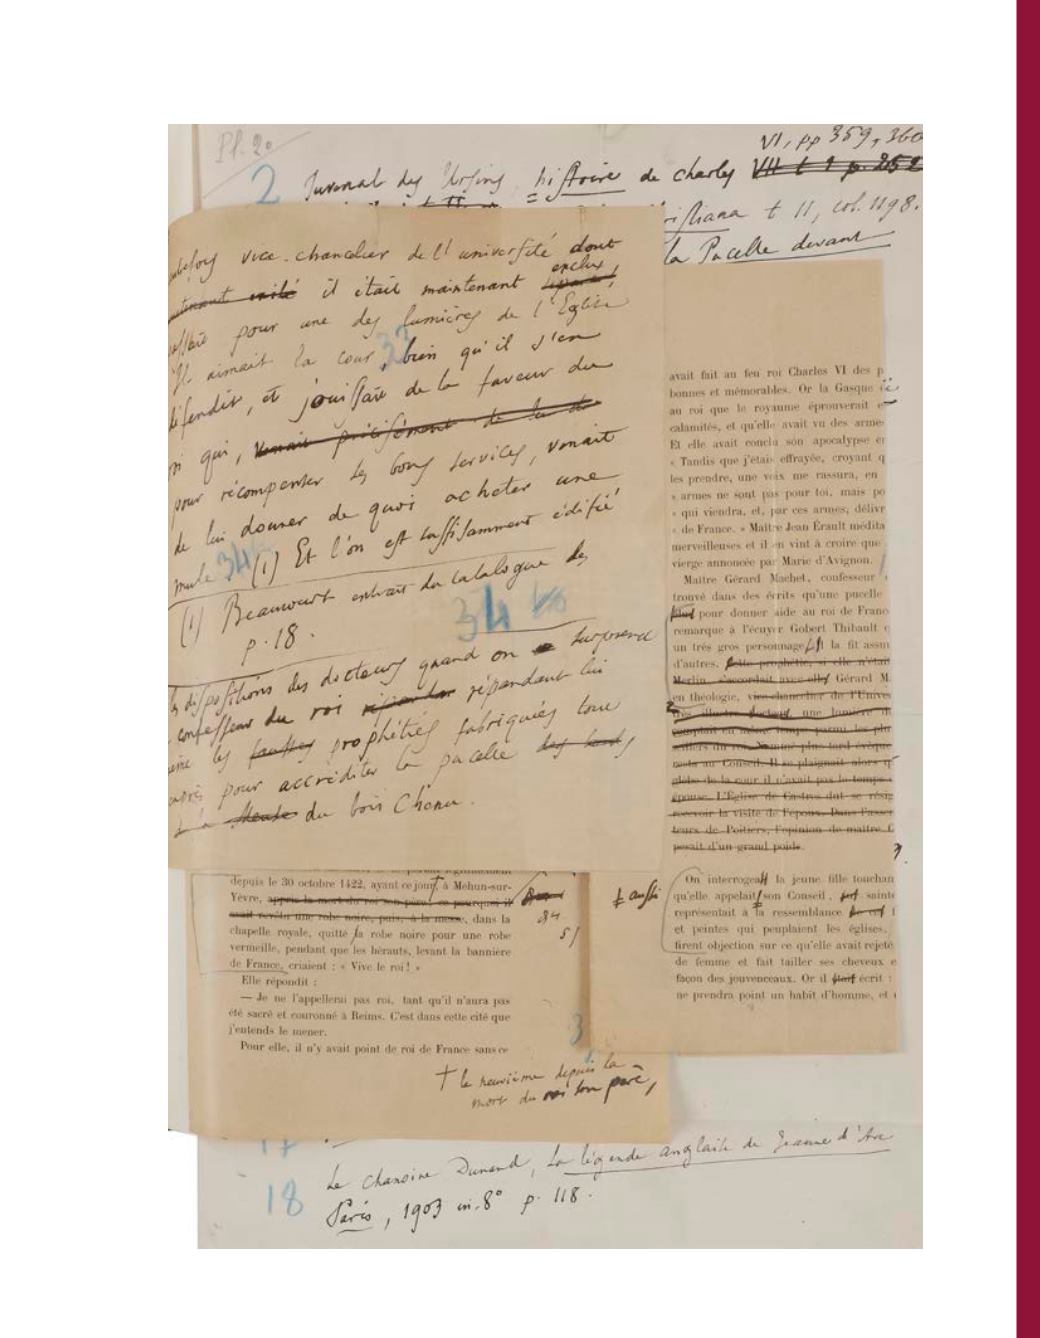 Pl. 20
VI, pp 359, 360
2 Juvenal des Ursins, histoire de Charles VII t 1 p. 252
t 11, col. 1198.
la Pucelle devant
vice-chancelier de l'université dont
exclus,
il était maintenant
pour une des lumières de l'Eglise
Il aimait la cour, bien qu'il s'en
défendit, et jouissait de la faveur du
qui, venait précisément de lui de
pour récompenser ses bons services, venait
de lui donner de quoi acheter une
mule (1) Et l'on est suffisamment édifié
(1) Beaucourt extrait du catalogue des
p. 18.
34
dispositions des docteurs quand on surprend
confesseur du roi répandant lui
les fausses prophéties fabriquées tout
exprès pour accréditer la pucelle des bords
du bois Chenu.
avait fait au feu roi Charles VI des p
bonnes et mémorables. Or la Gasque
au roi que le royaume éprouverait
calamités, et qu'elle avait vu des armes
Et elle avait conclu son apocalypse
« Tandis que j'étais effrayée, croyant q
les prendre, une voix me rassura, en
« armes ne sont pas pour toi, mais po
« qui viendra, et, par ces armes, délivr
« de France. » Maître Jean Érault médita
merveilleuses et il en vint à croire que
vierge annoncée par Marie d'Avignon.
Maître Gérard Machet, confesseur
trouvé dans des écrits qu'une pucelle
pour donner aide au roi de Franc
remarque à l'écuyer Gobert Thibault
un très gros personnage, la fit assu
d'autres. Cette prophétie, si elle n'était
Merlin, s'accordait avec elles Gérard M
en théologie, vice-chancelier de l'Unive
très illustre docteur, une lumière
comptait en même temps parmi les plu
du roi. Nommé plus tard évêque
resta au Conseil. Il se plaignait alors q
globe de la cour il n'avait pas le temps
épouse. L'Église de Castres dut se résig
recevoir la visite de l'époux. Dans l'asse
teurs de Poitiers, l'opinion de maître
pesait d'un grand poids.
On interrogea la jeune fille touchan
aussi
qu'elle appelait son Conseil, sainte
représentait à la ressemblance
et peintes qui peuplaient les églises.
firent objection sur ce qu'elle avait rejeté
de femme et fait tailler ses cheveux e
façon des jouvenceaux. Or il était écrit :
ne prendra point un habit d'homme, et
depuis le 30 octobre 1422, ayant ce jour, à Mehun-sur-
Yèvre, appris la mort du roi son père, ce pourquoi il
avait revêtu une robe noire, puis, à la messe, dans la
chapelle royale, quitté la robe noire pour une robe
vermeille, pendant que les hérauts, levant la bannière
de France, criaient : « Vive le roi ! »
Elle répondit :
— Je ne l'appellerai pas roi, tant qu'il n'aura pas
été sacré et couronné à Reims. C'est dans cette cité que
j'entends le mener.
Pour elle, il n'y avait point de roi de France sans ce
84
3
+ le neuvième depuis la
mort du roi son père,
17
18 Le chanoine Dunand, La légende anglaise de Jeanne d'Arc
Paris, 1903 in-8° p. 118.